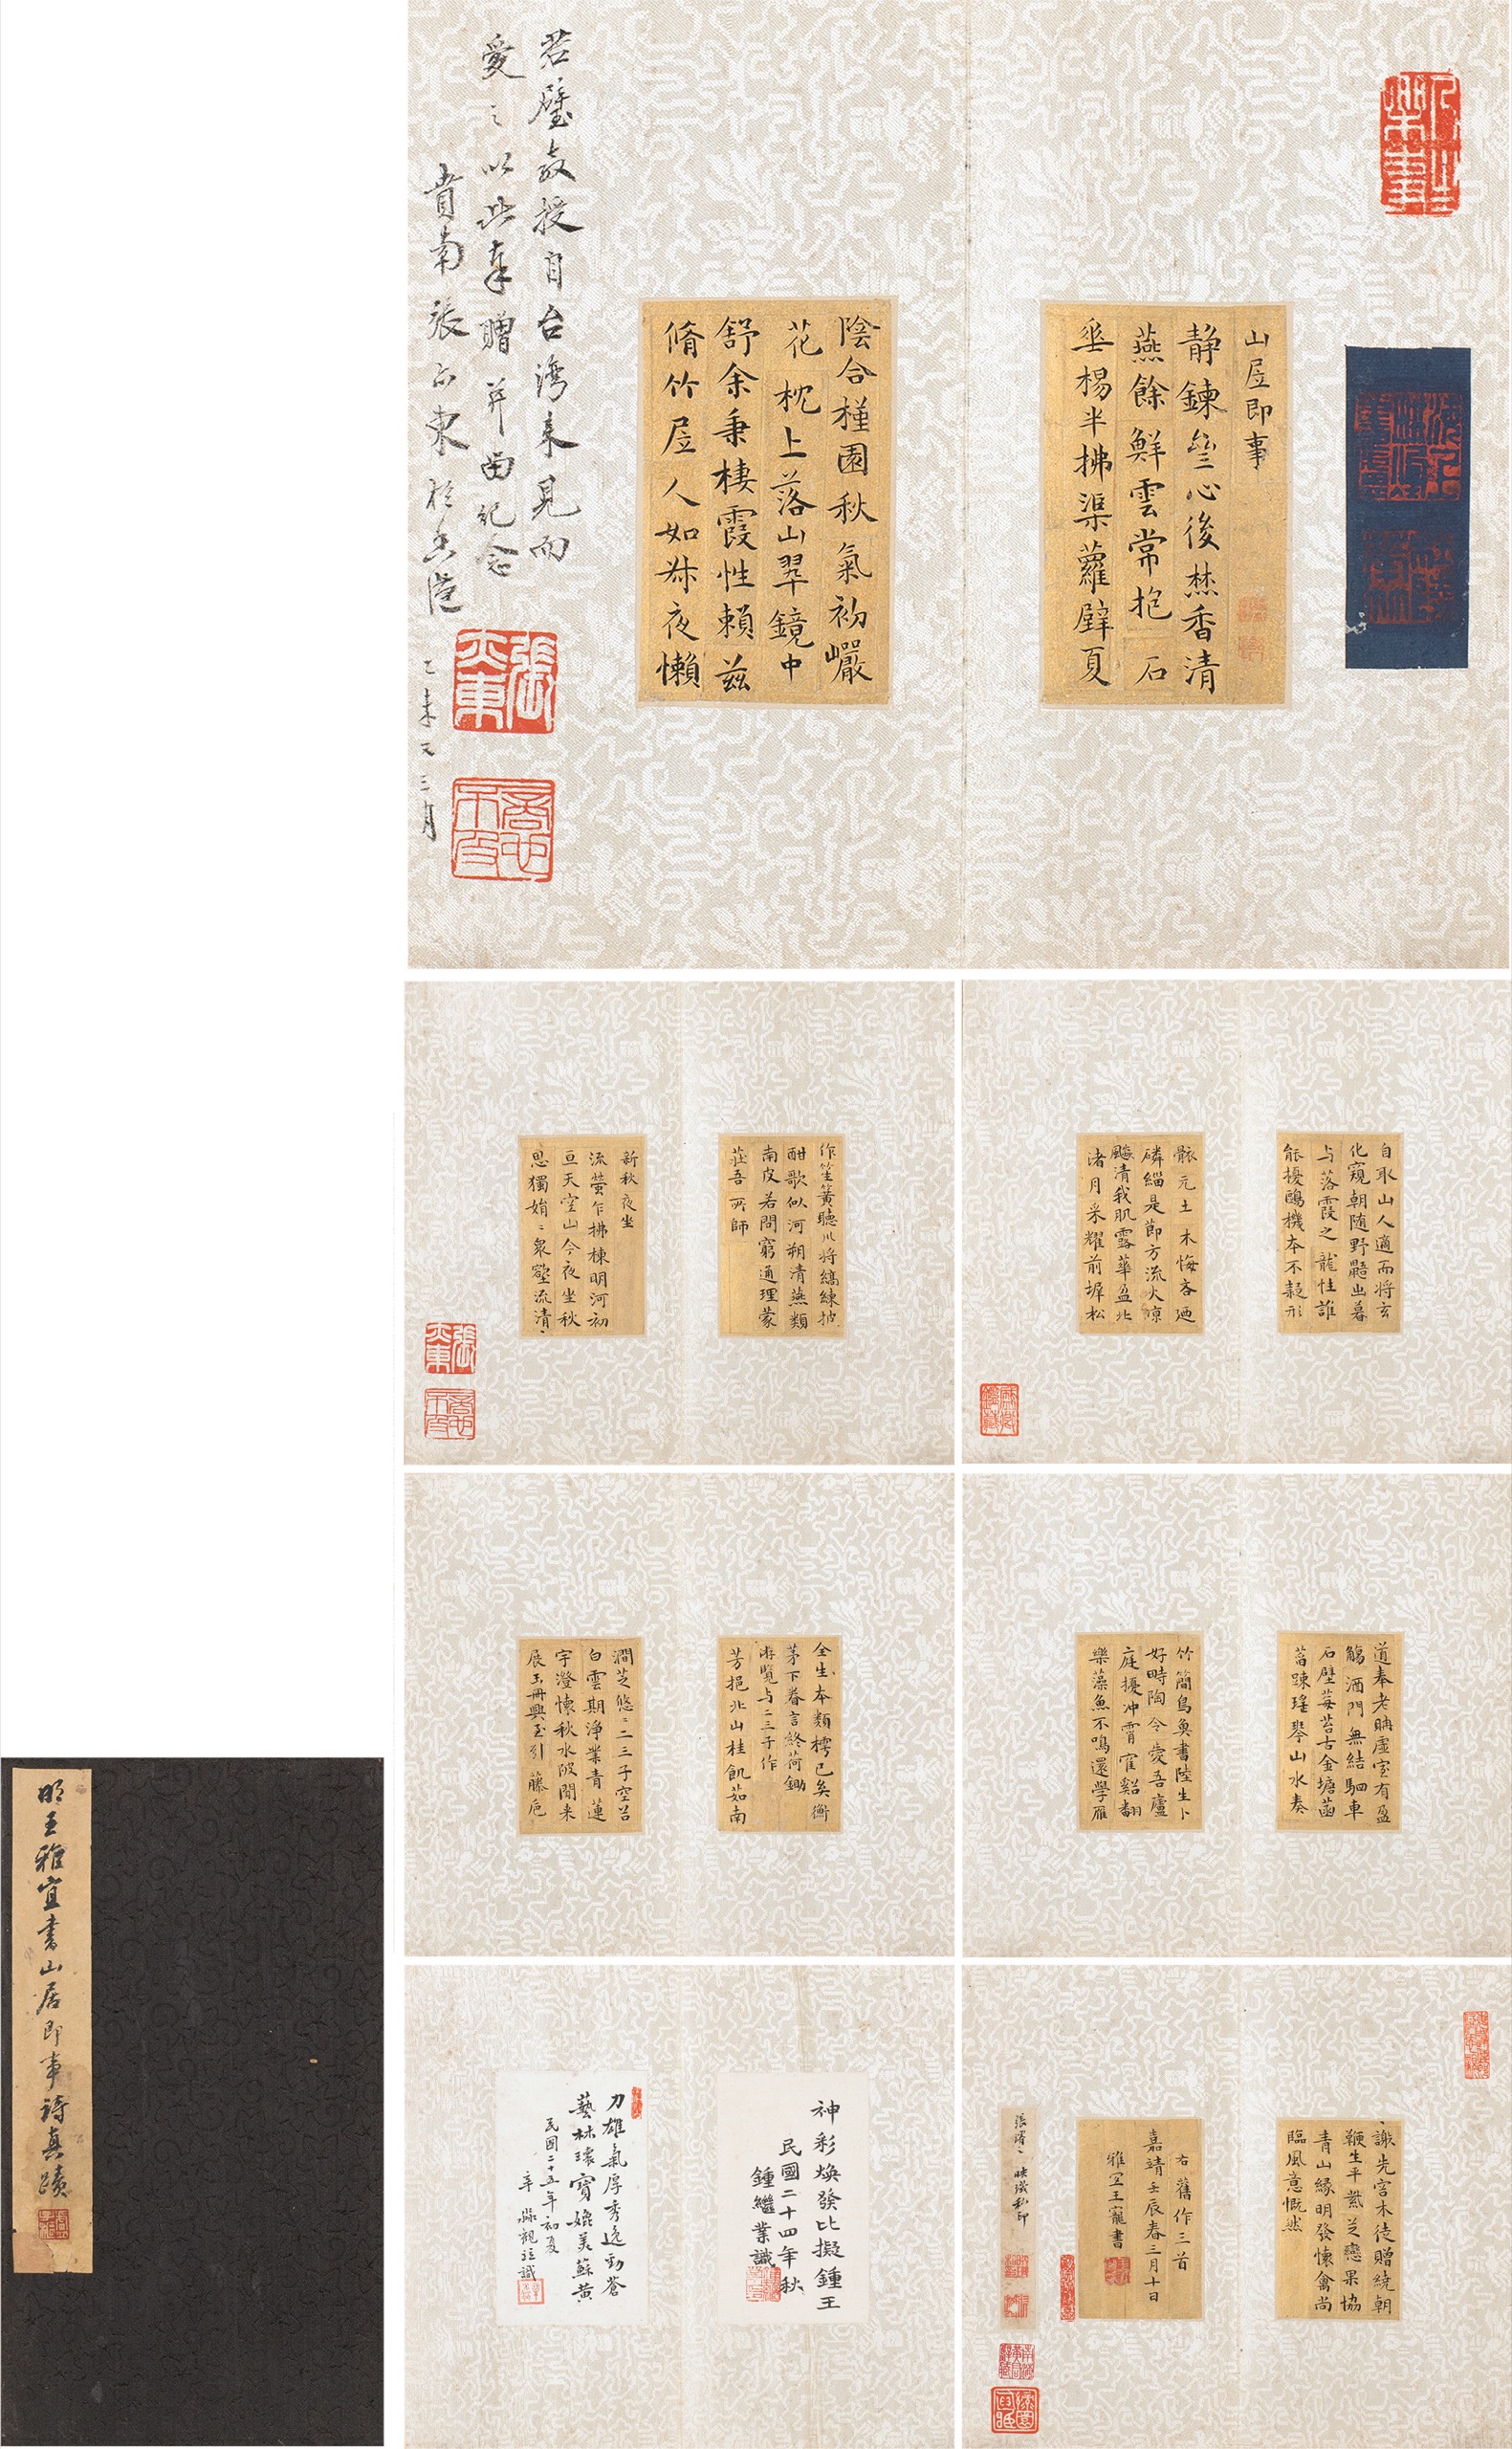 山居即事
静鍊叁心後焚香清
燕餘鮮雲常抱石
垂楊半拂渠蘿壁夏
陰合槿園秋氣初巖
花枕上落山翠鏡中
舒余秉棲霞性賴茲
脩竹居人如叔夜懶
君璧教授自台灣來見而
愛之以此奉贈并留紀念
貴南張六東於香港
乙未又三月
自取山人適而將玄
化窺朝随野鼯出暮
与落霞之龍性誰
能擾鷗機本不疑形
骸元土木悔吝迺
磷緇是節方流火凉
飈清我肌露華盈北
渚月采耀前墀松
作笙簧聽川将縞練披
酣歌似河朔清燕類
南皮若問窮通理蒙
莊吾所師
新秋夜坐
流螢乍拂棟明河初
亘天空山今夜坐秋
思獨娟〻衆壑流清〻
道奉老聃虚室有盈
觴酒門無結駟車
石壁莓苔古金塘菡
萏踈瑶琴山水奏
竹簡鳥奧書陸生卜
好畤陶令愛吾廬
庭擾冲霄寉谿翻
樂藻魚不鳴還學雁
全生本類樗已矣衡
茅下眷言終荷鋤
游覽与二三子作
芳挹北山桂飢茹南
澗芝悠〻二三子空吕
白雲期浄業青蓮
宇澄懷秋水陂閒来
展玉冊興至引藤巵
謝先宫木徒贈繞朝
鞭生平紫芝戀果協
青山緣明發懷禽尚
臨風意慨然
右舊作三首
嘉靖壬辰春三月十日
雅宜王寵書
神彩煥發比擬鍾王
民國二十四年秋
鍾繼業識
力雄氣厚秀逸勁蒼
藝林瓌寶媲美蘇黄
民國二十五年初夏
明王雅宜書山居即事詩真蹟